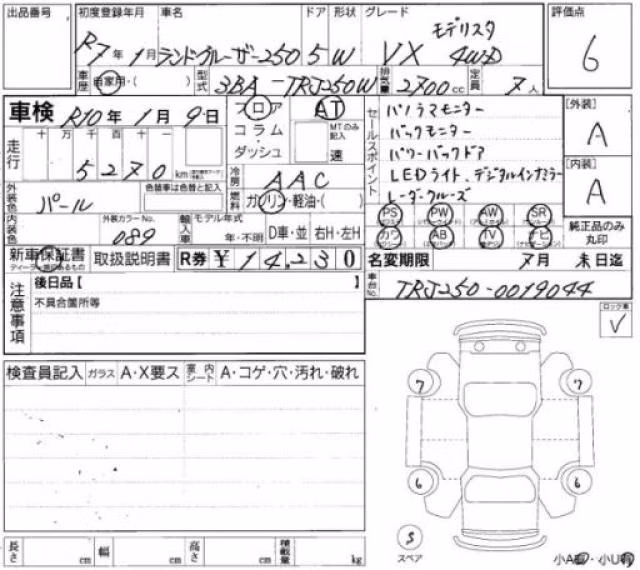 出品番号 初度登録年月 車名 ドア 形状 グレード 評価点
R7年1月 ランドクルーザー250 5 W VX モデリスタ 4WD 6
車歴 自家用・( ) 型式 3BA-TRJ250W 排気量 2700cc 定員 7人
車検 R10年1月9日 フロア AT
コラム・ MTのみ記入
ダッシュ 速
走行 十 万 千 百 十 一
5270 km
冷房 AAC
セールスポイント パノラマモニター
バックモニター
パワーバックドア
LEDライト、デジタルインナミラー
レーダークルーズ
[外装] A
[内装] A
外装色 パール 色替車は色替と記入
燃料 ガソリン・軽油・( )
内装色 外装カラーNo. 089 輸入車 モデル年式 年・不明 D車・並 右H・左H
PS PW AW SR
カワ AB TV ナビ
純正品のみ丸印
新車保証書 取扱説明書 R券 ¥14,230
名変期限 7月末日迄
車台No. TRJ250-0019044
注意事項 後日品【 】
不具合箇所等
ロック車
✓
検査員記入 ガラス A・X要ス 室内シート A・コゲ・穴・汚れ・破れ
7 7
6 6
S
スペア
長さ cm 幅 cm 高さ cm 積載量 kg
小A有・小U有